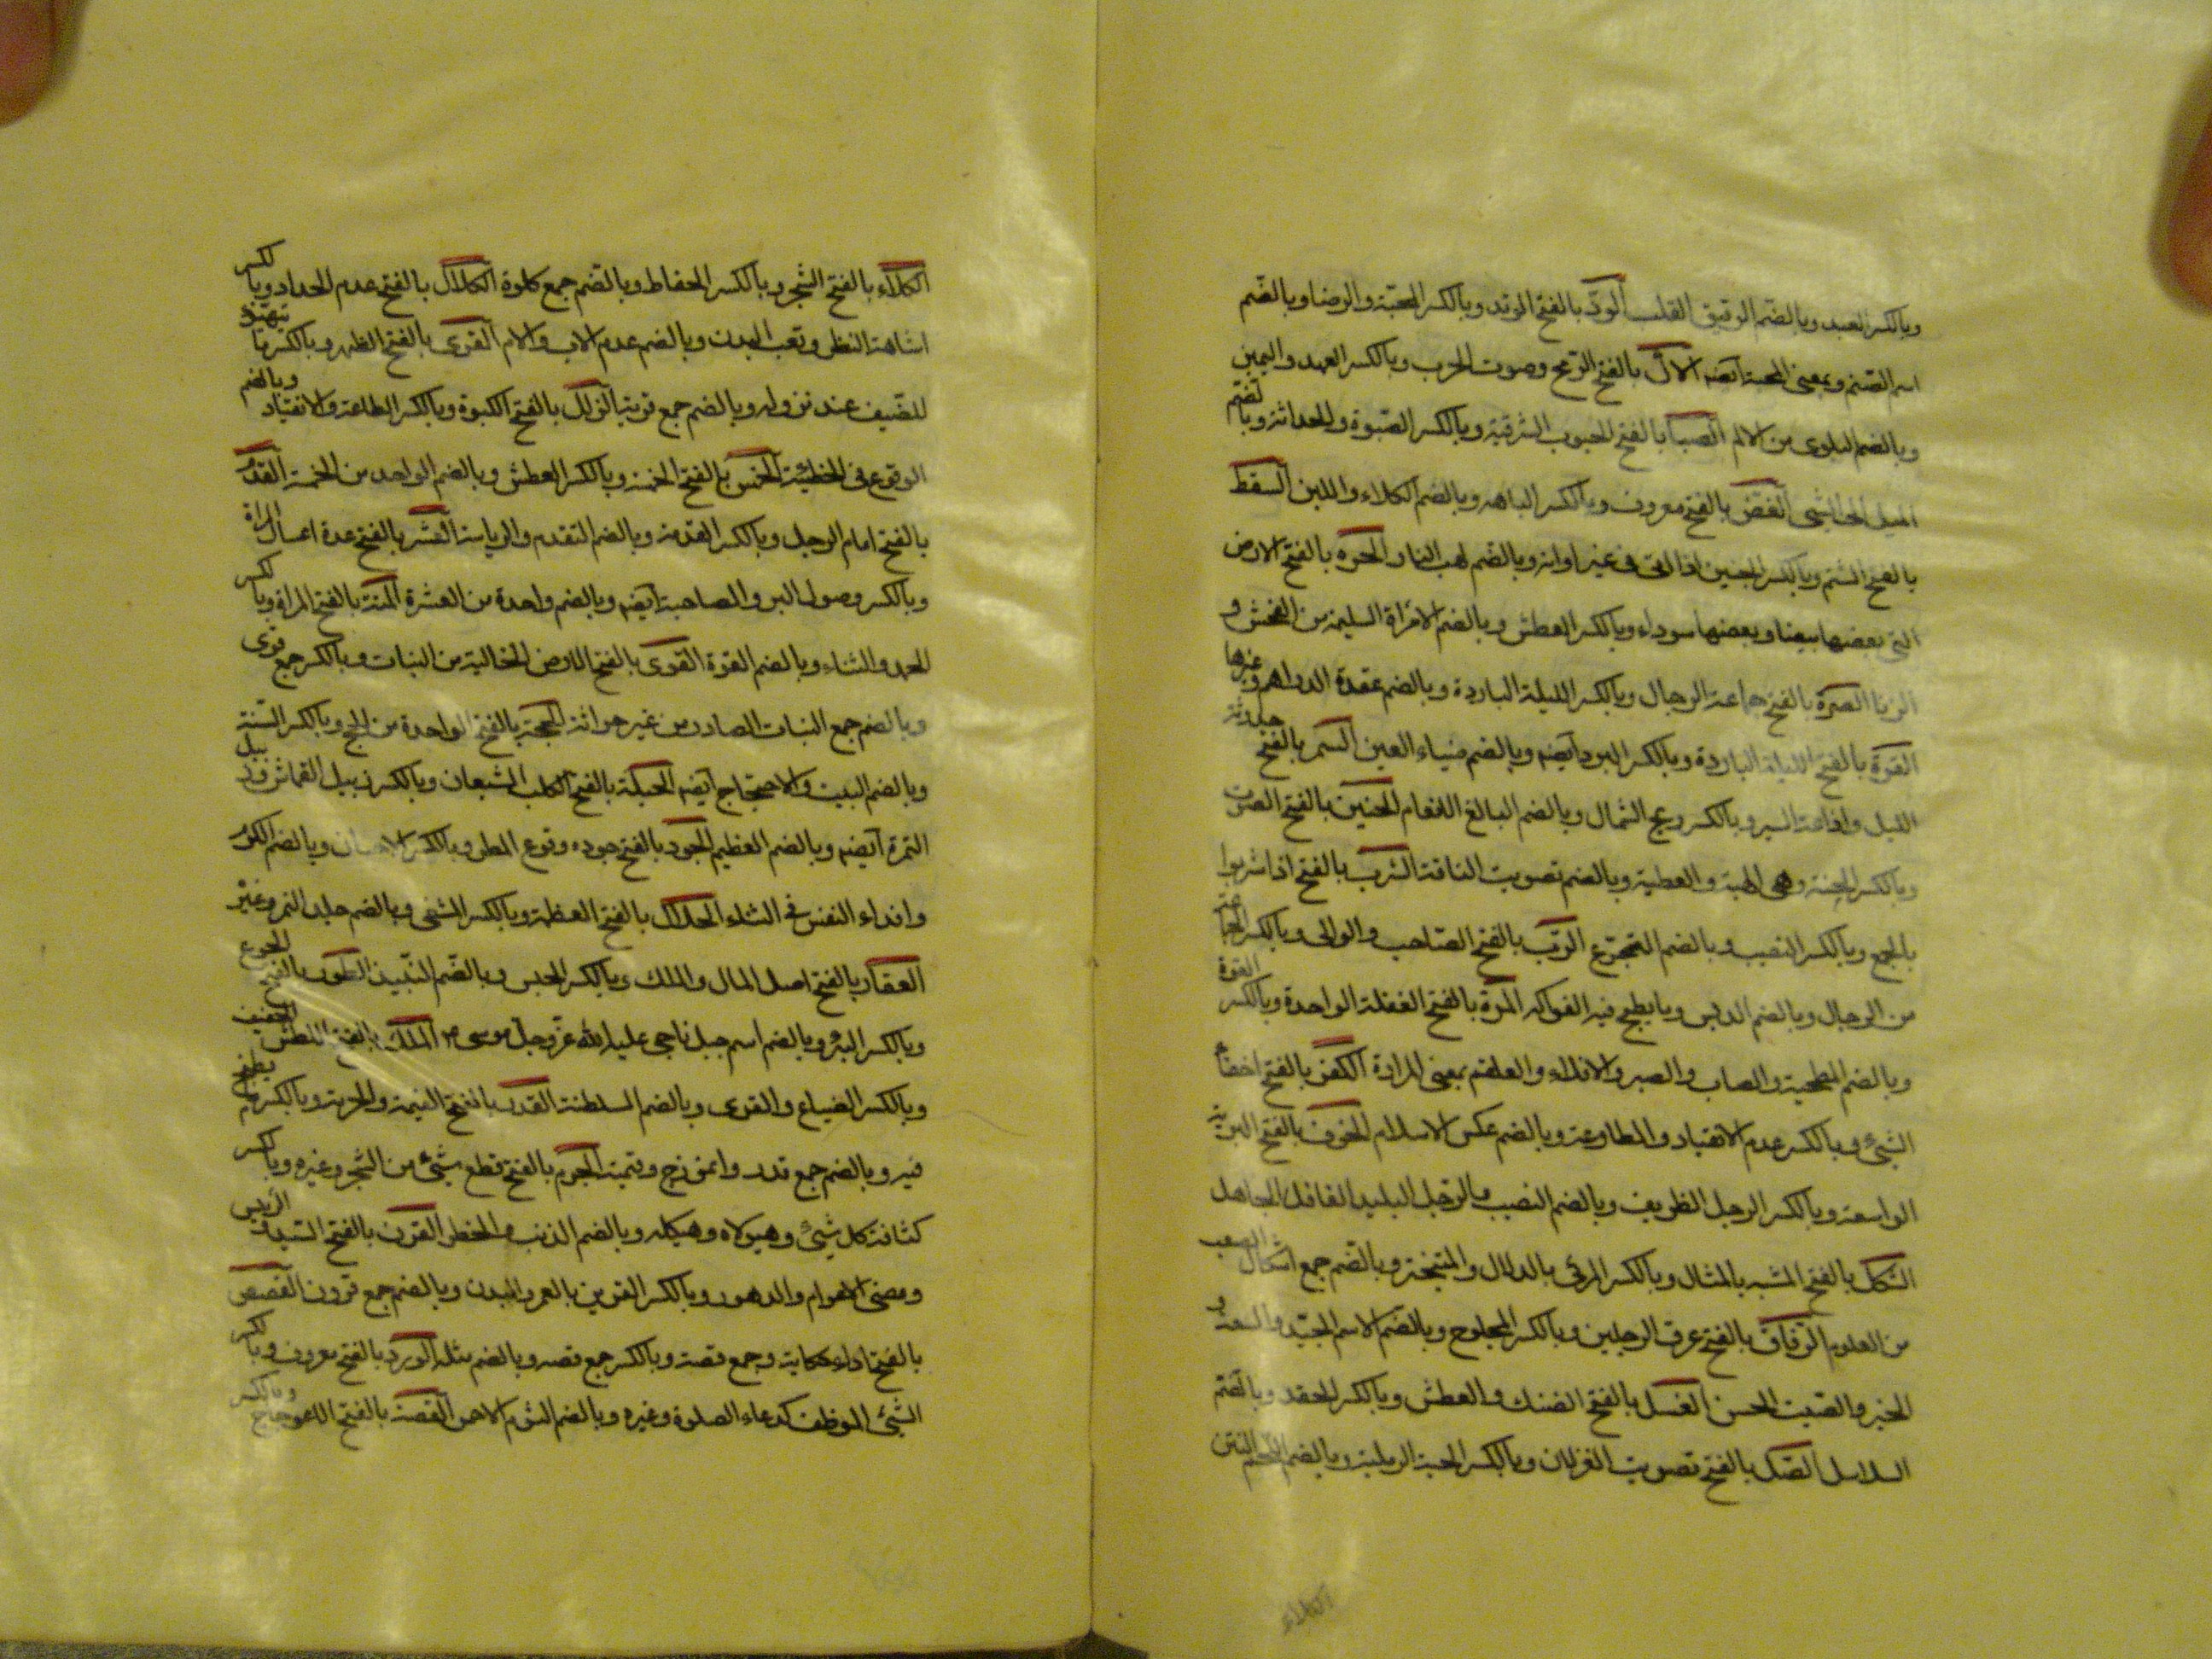 وبالكسر العبيد وبالضم الرقيق القلب الودّ بالفتح الوتد وبالكسر المحبّة والرضا وبالضّم
اسم الصّنم وبمعنى المحبة ايضه الالّ بالفتح الرّمح وصوت الحرب وبالكسر العهد واليمين
وبالضم البلوى من الالم الصّبا بالفتح الحبوب الشرقية وبالكسر الصّبوة والحداثة وبالضّم
الميل الى الشيى الغضّ بالفتح معروف وبالكسر الباهه وبالضم الكلاء واللبن السقط
بالفتح الشتم وبالكسر الجنين اذا القى فى غير اوانه وبالضّم لهب النار الحرّه بالفتح الارض
التى بعضها بيضا وبعضها سوداء وبالكسر العطش وبالضم الامرأة السليمة من الفحش و
الزنا الصرّة بالفتح جماعة الرجال وبالكسر الليلة الباردة وبالضم عقدة الدراهم وغيرها
القرّة بالفتح الليلة الباردة وبالكسر البرد ايضه وبالضم ضياء العين السّمر بالفتح
الليل واقامة السير وبالكسر ريح الشمال وبالضم البالغ الفغام الحنين بالفتح الصّوت
وبالكسر الجنة وهى الهبة والعطية وبالضم تصويت الناقة الشرب بالفتح اذا شربوا
بالجمع وبالكسر النصيب وبالضم التجرّع الرّبّ بالفتح الصّاحب والوالى وبالكسر الجماعة
من الرجال وبالضم الدبس وما يطبخ فيه الفواكه المرّة بالفتح الفعلة الواحدة وبالكسر القوة
وبالضم البطيحية والصاب والصبر والافلاء والعلقم بمعنى المرارة الكفر بالفتح اخفاء
الشيئ وبالكسر عدم الانقياد والمطاوعة وبالضم عكس الاسلام الخرق بالفتح البرية
الواسعة وبالكسر الرجل الظريف وبالضم النصيب والرّجل البليد الغافل الجاهل
الشّكل بالفتح المشبه بالمثال وبالكسر المرئى بالدلال والمتبختر وبالضّم جمع اشكال الصعب
من العلوم الرّقاق بالفتح عرق الرجلين وبالكسر المجلوح وبالضّم الاسم الجيّد والسعد و
الخير والصّيت الحسن الغسل بالفتح الضنك والعطش وبالكسر الحقد وبالضّم
السلاسل الصّكّ بالفتح تصويت الغزلان وبالكسر الحية الرملية وبالضم اللّحم النّتن
الكلاء
الكلاء بالفتح الشّجر وبالكسر الحفاظ وبالضّم جمع كلوة الكلال بالفتح عدم الحداد وبالكسر
اشاهة النظر وتعب البدن وبالضم عدم الاب والام القرى بالفتح الظهر وبالكسر ما يتهيّؤ
للضّيف عند نزوله وبالضم جمع قرية الزلل بالفتح الكبوة وبالكسر الطاعة والانقياد وبالضم
الوقوع فى الخطيئة الخمس بالفتح الخمة وبالكسر العطش وبالضم الواحد من الخمسة القدّم
بالفتح امام الرجل وبالكسر القدمة وبالضم التقدم والرياسة العشر بالفتح عدة اعمال المراة
وبالكسر وصول البر والمصاحبة ايضه وبالضم واحدة من العشرة المنّة بالفتح المراة وبالكسر
الحمد والثناء وبالضم القوة القوى بالفتح الارض الخالية من النبات وبالكسر جمع قوى
وبالضم جمع النبات الصادر من غير حراثة الحجة بالفتح الواحدة من الحج وبالكسر السّنة
وبالضم البيت والاحتجاج ايضه الحبكة بالفتح الكلب الشبعان وبالكسر زنبيل القماش وزنبيل
التمرة ايضه وبالضم العظيم الجود بالفتح جوده وقوع المطر وبالكسر الاحسان وبالضم الكرم
وافداء النفس فى الثناء الحلال بالفتح العظمة وبالكسر الشفى وبالضم جلد النمر وغيره
العقار بالفتح اصل المال والملك وبالكسر الحبس وبالضّم النّبيذ الطوى بالفتح الجوع
وبالكسر البئر وبالضم اسم جبل ناجى عليه الله عزّ وجلّ موسى م الملك بالفتح البطش الخفيف
وبالكسر الضياع والقرى وبالضم السلطنة القدر بالفتح القيمة والحرمة وبالكسر ما يطبخ
فيه وبالضم جمع قدر وانمزج وقيمت الجرم بالفتح قطع شيئ من الشّجر وغيره وبالكسر
كثافة كل شيئ وهيولاه وهيكله وبالضم الذنب والخطر القرن بالفتح السّيد الرئيس
ومضى الاعوام والدهور وبالكسر القرين بالعمر والبدن وبالضم جمع قرون القصص
بالفتح اداء حكاية وجمع قصة وبالكسر جمع قصه وبالضم مثله الورد بالفتح معروف وبالكسر
الشّيئ الموظف كدعاء الصلوة وغيره وبالضم الشؤم الاحمر القصة بالفتح الاعوجاج وبالكسر